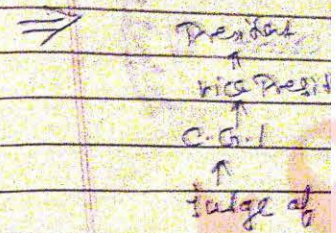 ⇒ President
↑
vice Presid
↑
C.G.I
↑
Judge of